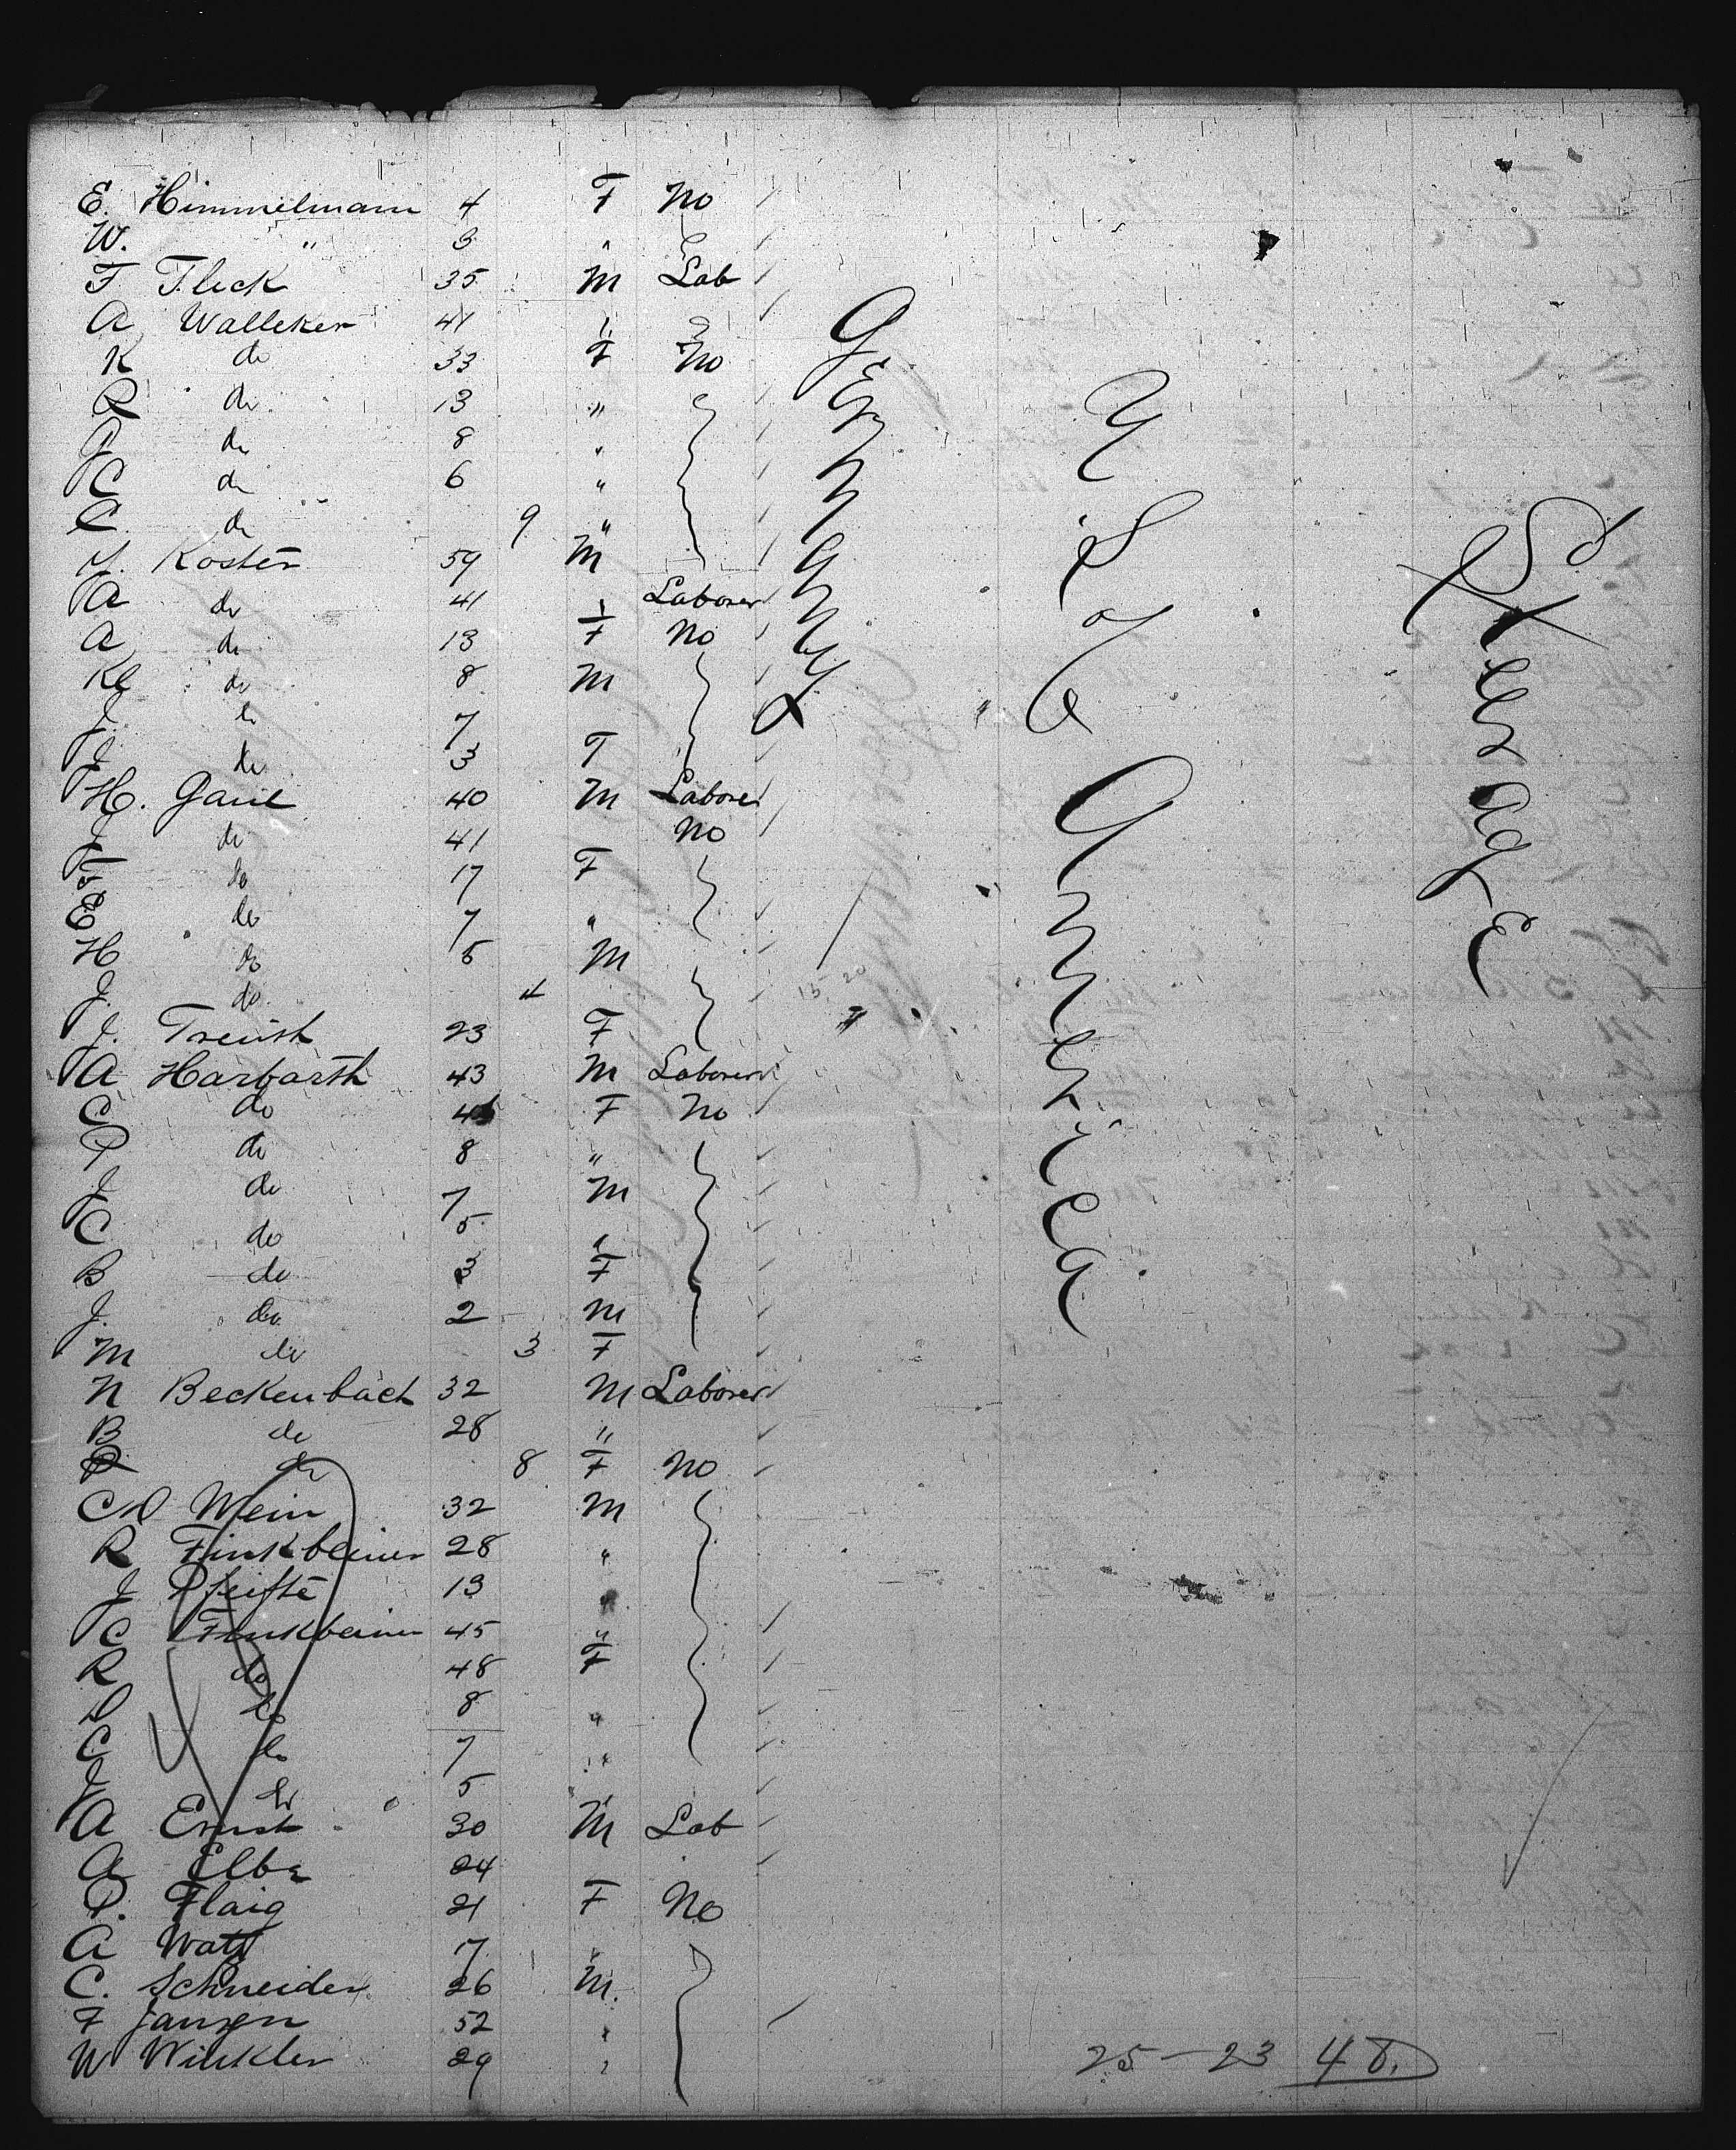 E. Himmelmann 4 F No
W. " 3 "
F Fleck 35 M Lab
A Walleker 41 "
K do 33 F No
R do 13 "
P do 8 "
C do 6 "
C do 9 "
J. Koster 59 M
A do 41 " Laborer
A do 13 F No
Kl do 8 M
J. do 7
J do 3 F
H. Gaul 40 M Laborer
J do 41 No
F do 17 F
E do 7 "
H do 5 M
J. do 4
J. Treusch 23 F
A Harbarth 43 M Laborer
C do 45 F No
P do 8 "
J do 7 M
C do 5 "
B do 3 F
J. do 2 M
M do 3 F
N Beckenbach 32 M Laborer
B do 28 "
P do 8 F No
Wein 32 M
R Finkbeiner 28 "
J 13 "
C Finkbeiner 45 "
R do 48 F
D do 8 "
C do 7 "
J do 5 "
A Ernst 30 M Lab
A Elbe 24
P. Flaig 21 F No
A Watt 17 "
C. Schneider 26 M.
F Jansen 52 "
W Winkler 29 "
Germany
U S of America
Steerage
15-20
25-23 48.